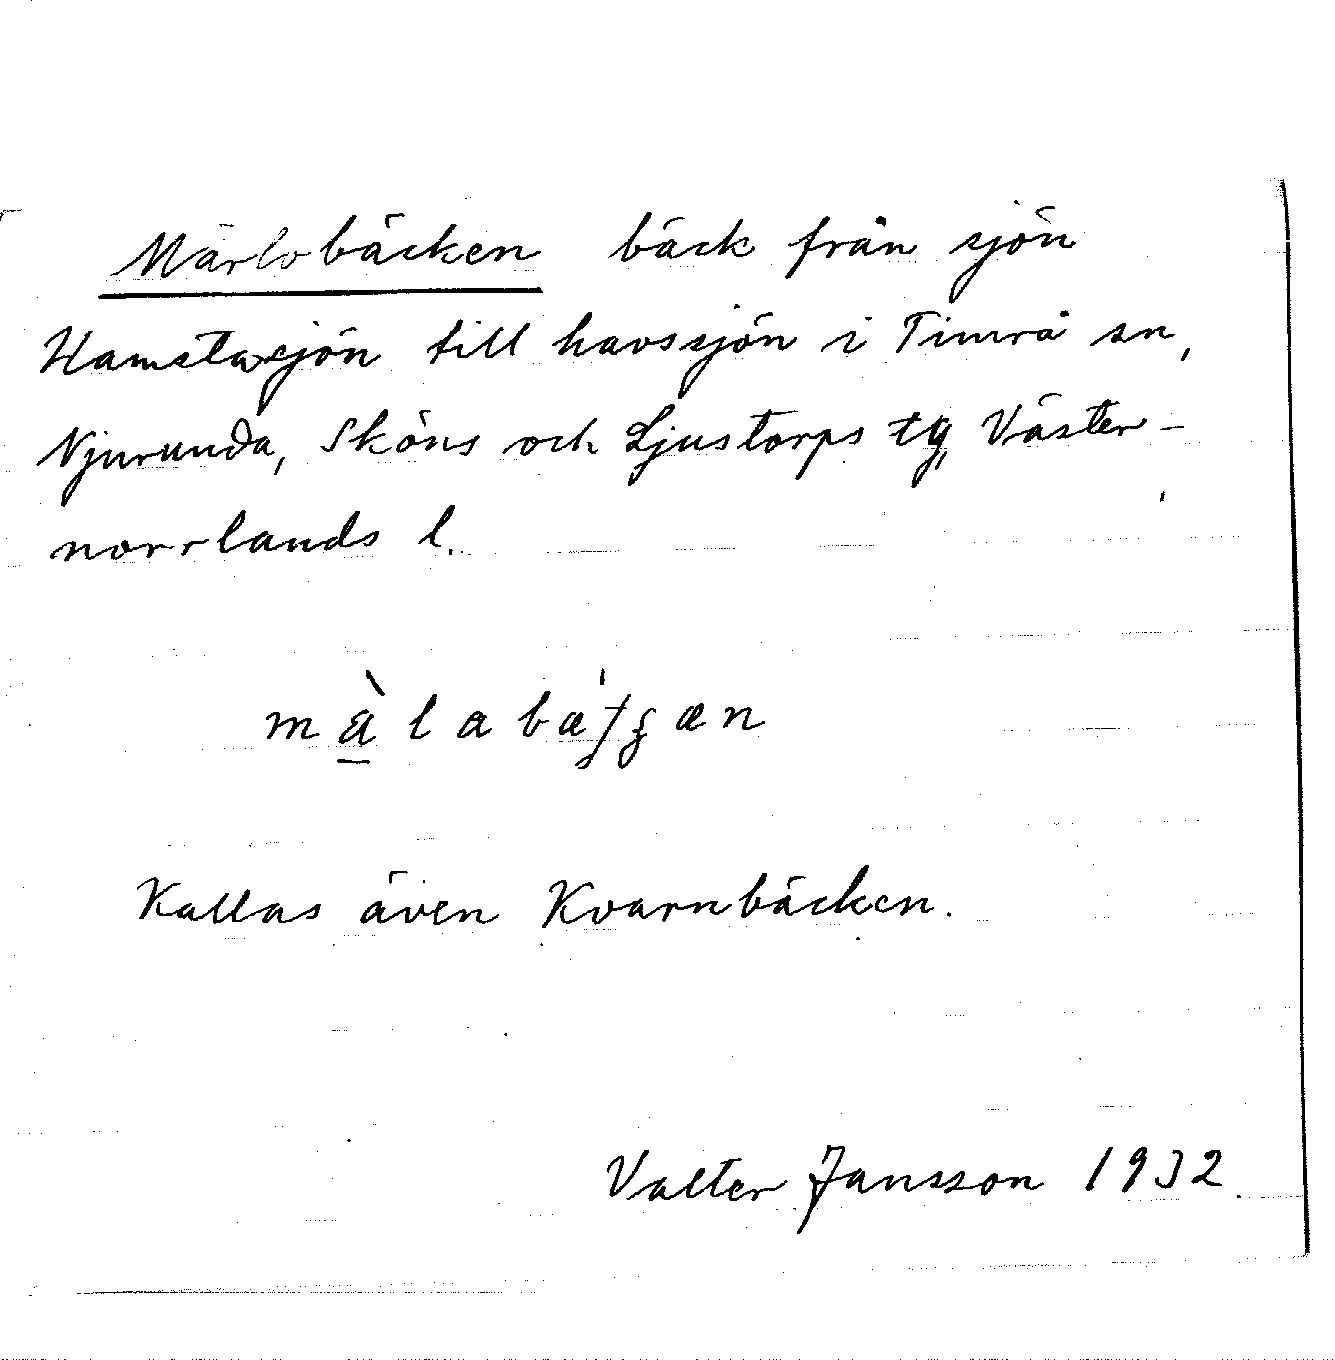 Märlobäcken bäck från sjön
Hamstasjön till havssjön i Timrå sn,
Njurunda, Sköns och Ljustorps tg, Väster-
norrlands l.
Kallas även Kvarnbäcken.
Valter Jansson 1932